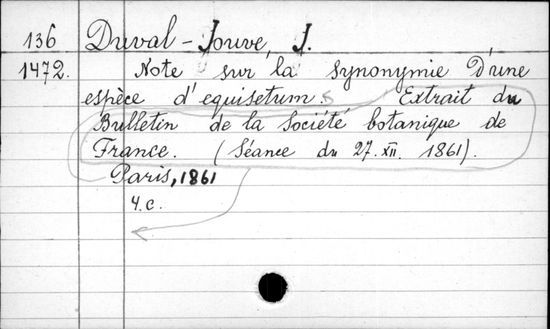 136 Duval-Jouve, J.
1472. Note sur la synonymie d'une
espèce d'equisetum. Extrait du
Bulletin de la Société botanique de
France. (Séance du 27.XII. 1861).
Paris, 1861
4.c.